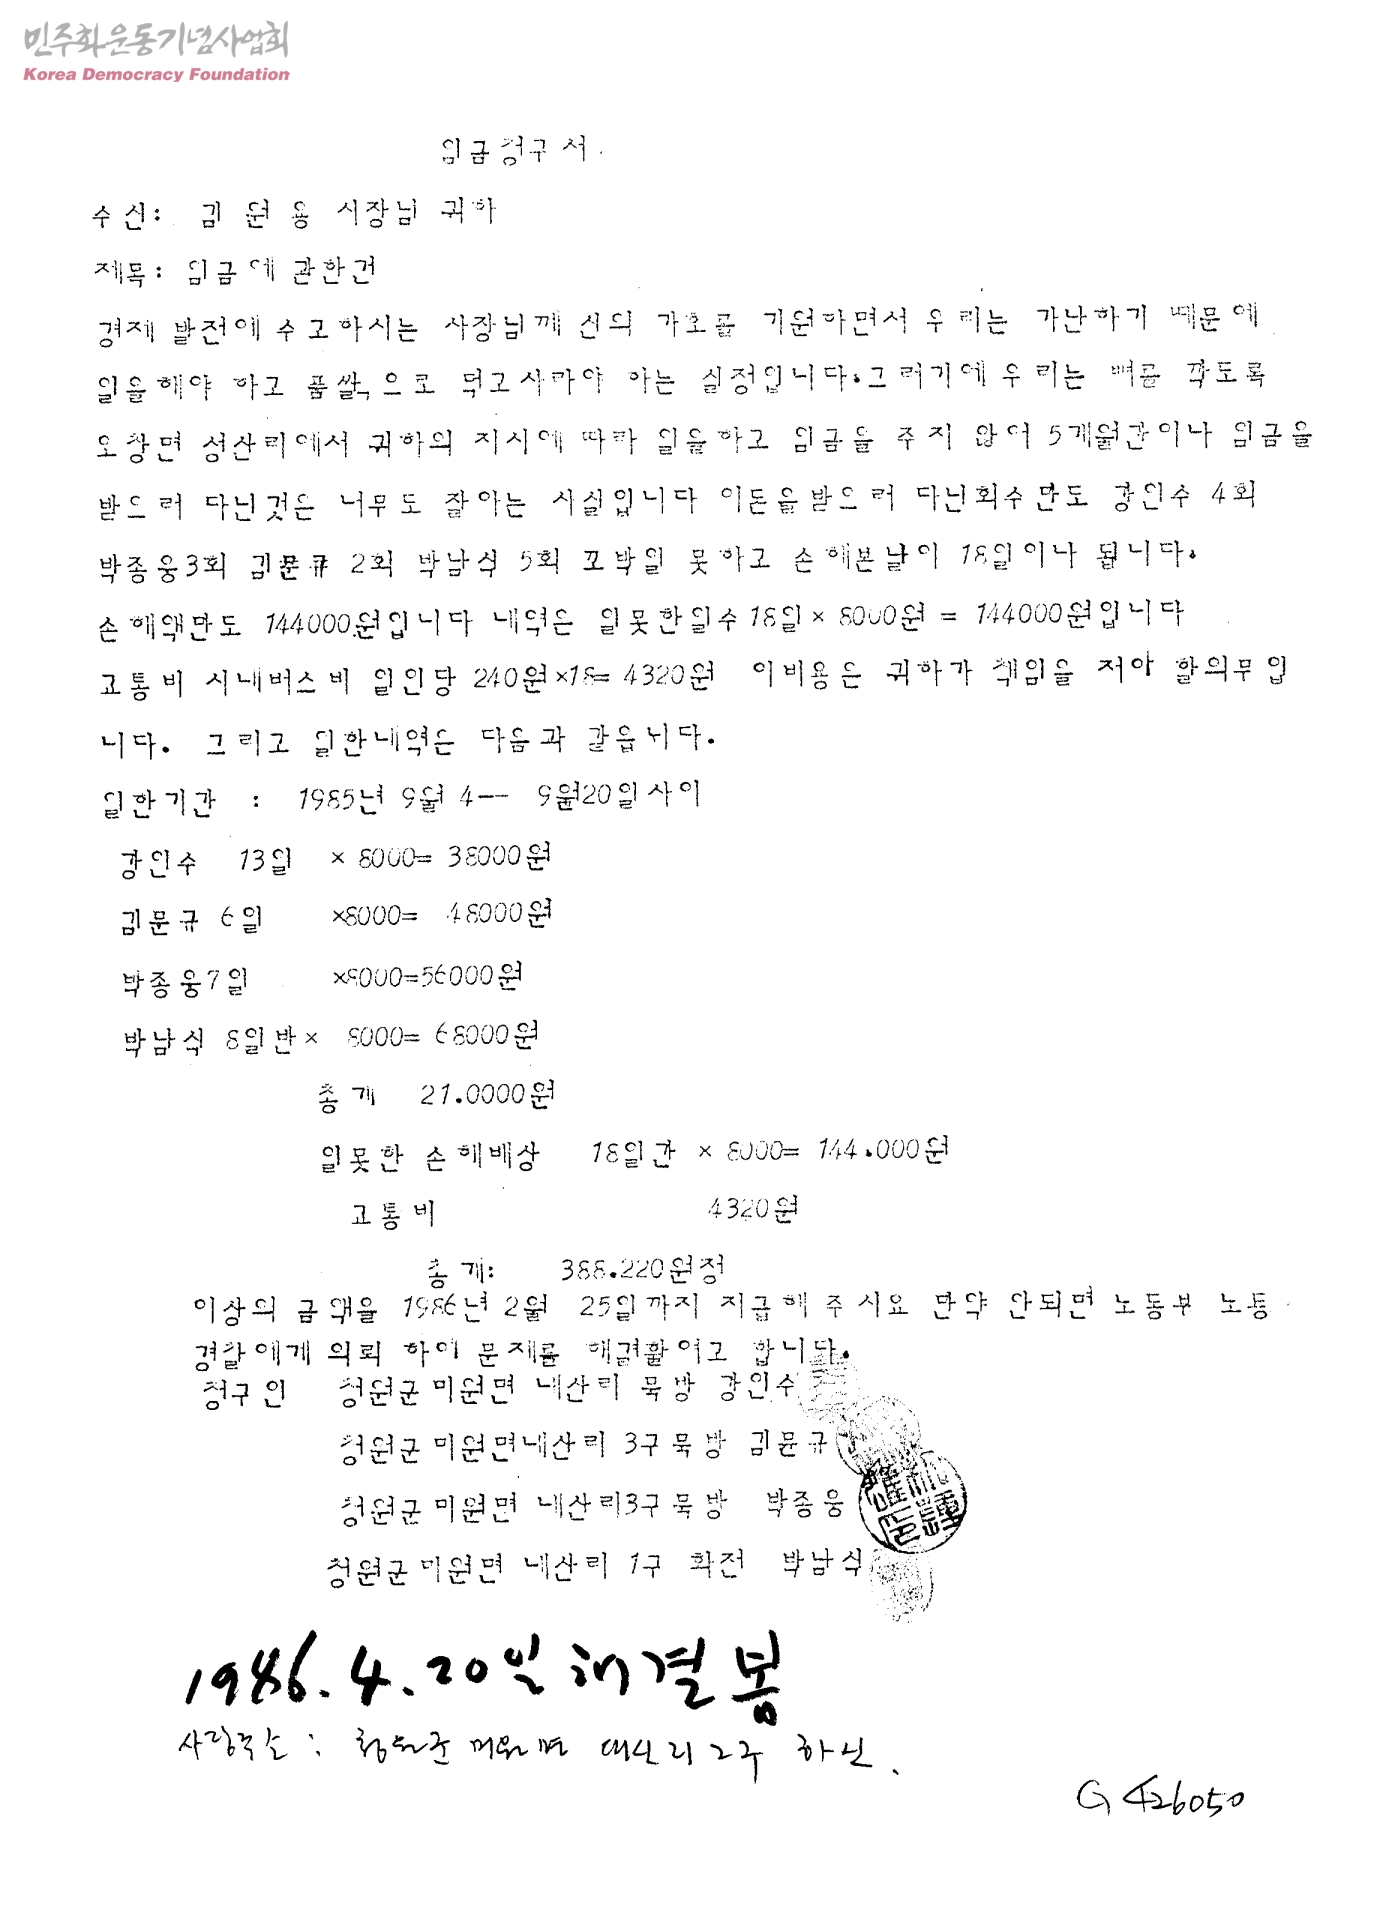 민주화운동기념사업회
Korea Democracy Foundation
임금청구서
수신: 김 원 용 사장님 귀하
제목: 임금에 관한건
경제 발전에 수고하시는 사장님께 신의 가호를 기원하면서 우리는 가난하기 때문에
일을해야 하고 품싻,으로 먹고사라야 하는 실정입니다.그러기에 우리는 뼈를 깍도록
오창면 성산리에서 귀하의 지시에 따라 일을하고 임금을 주지 않어 5개월간이나 임금을
받으러 다닌것은 너무도 잘아는 사실입니다 이돈을받으러 다닌회수만도 강인수 4회
박종웅3회 김문규 2회 박남식 5회 꼬박일 못하고 손해본날이 18일이나 됩니다.
손해액만도 144000원입니다 내역은 일못한일수 18일× 8000원 = 144000원입니다
교통비 시내버스비 일인당 240원×18= 4320원 이비용은 귀하가 책임을 저야 할의무입
니다. 그리고 일한내역은 다음과 같읍니다.
일한기간 : 1985년 9월 4-- 9월20일사이
강인수 13일 × 8000= 38000원
김문규 6일 ×8000= 48000원
박종웅7일 ×8000=56000원
박남식 8일반× 8000= 68000원
총계 21.0000원
일못한 손해배상 18일간 × 8000= 144.000원
교통비 4320원
총계: 388.220원정
이상의 금액을 1986년 2월 25일까지 지급해 주시요 만약 안되면 노동부 노동
경찰에게 의뢰 하여 문제를 해결할여고 합니다.
청구인 청원군미원면 내산리 묵방 강인수
청원군미원면내산리 3구묵방 김문규
청원군미원면 내산리3구묵방 박종웅
청원군미원면 내산리 1구 화전 박남식
1986.4.20일 해결봄
사장주소: 청원군 미원면 대신리 2구 하닌.
G 426050